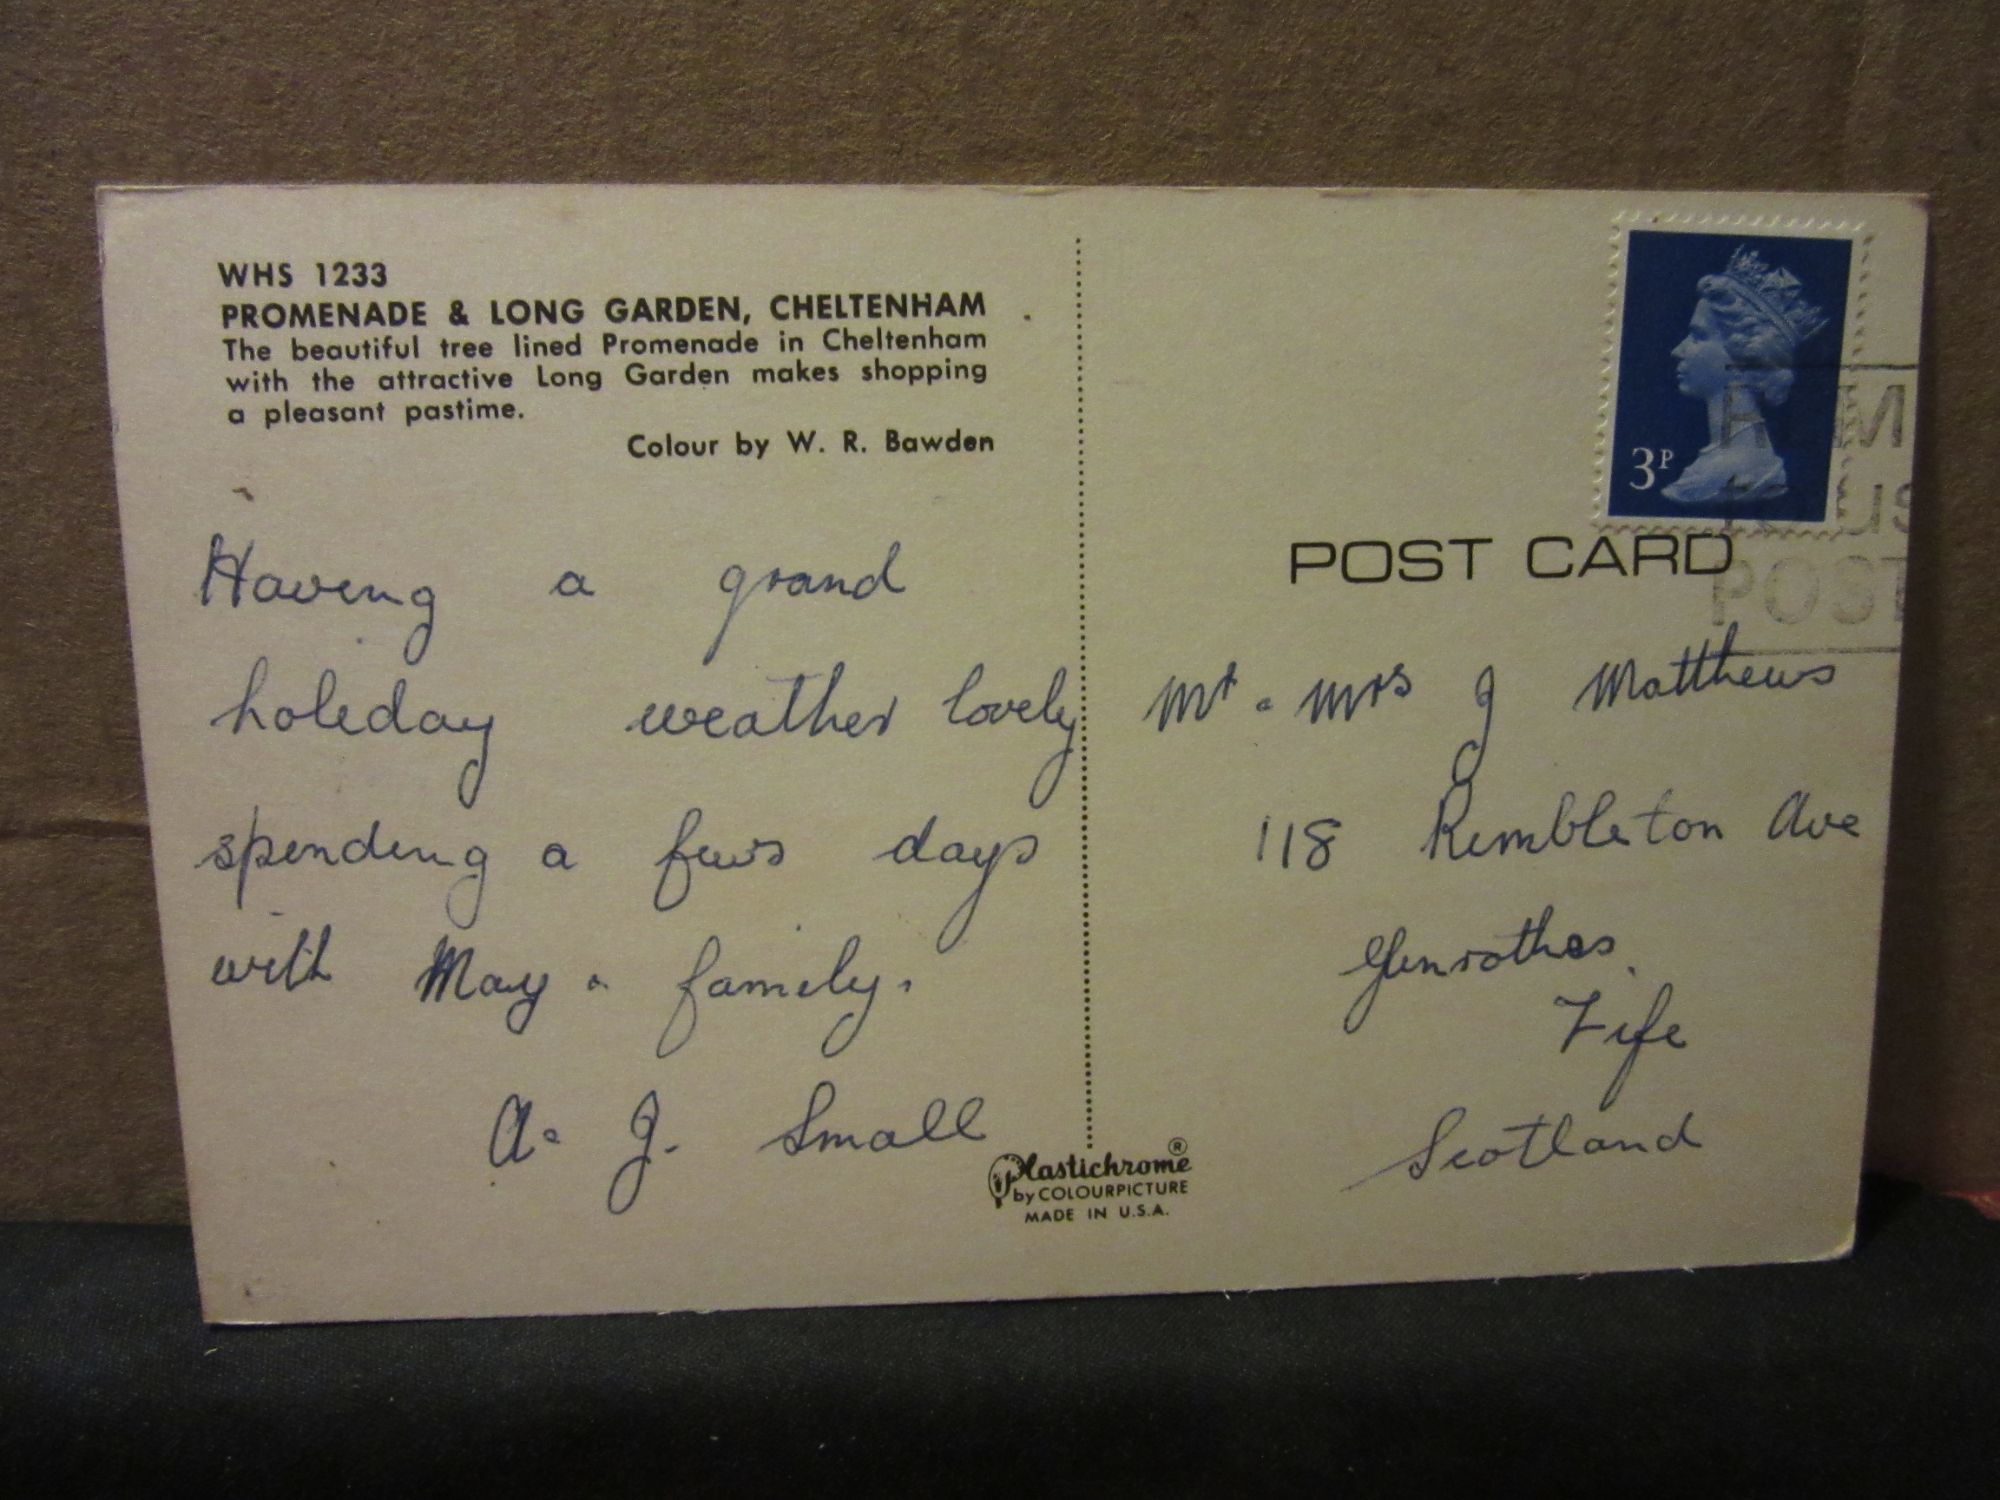 WHS 1233
PROMENADE & LONG GARDEN, CHELTENHAM
The beautiful tree lined Promenade in Cheltenham
with the attractive Long Garden makes shopping
a pleasant pastime.
Colour by W. R. Bawden
Having a grand
holiday weather lovely
spending a few days
with May & family.
A. J. Small
Plastichrome®
by COLOURPICTURE
MADE IN U.S.A.
3P
POST CARD
POST
Mr & Mrs J Matthews
118 Rimbleton Ave
Glenrothes
Fife
Scotland